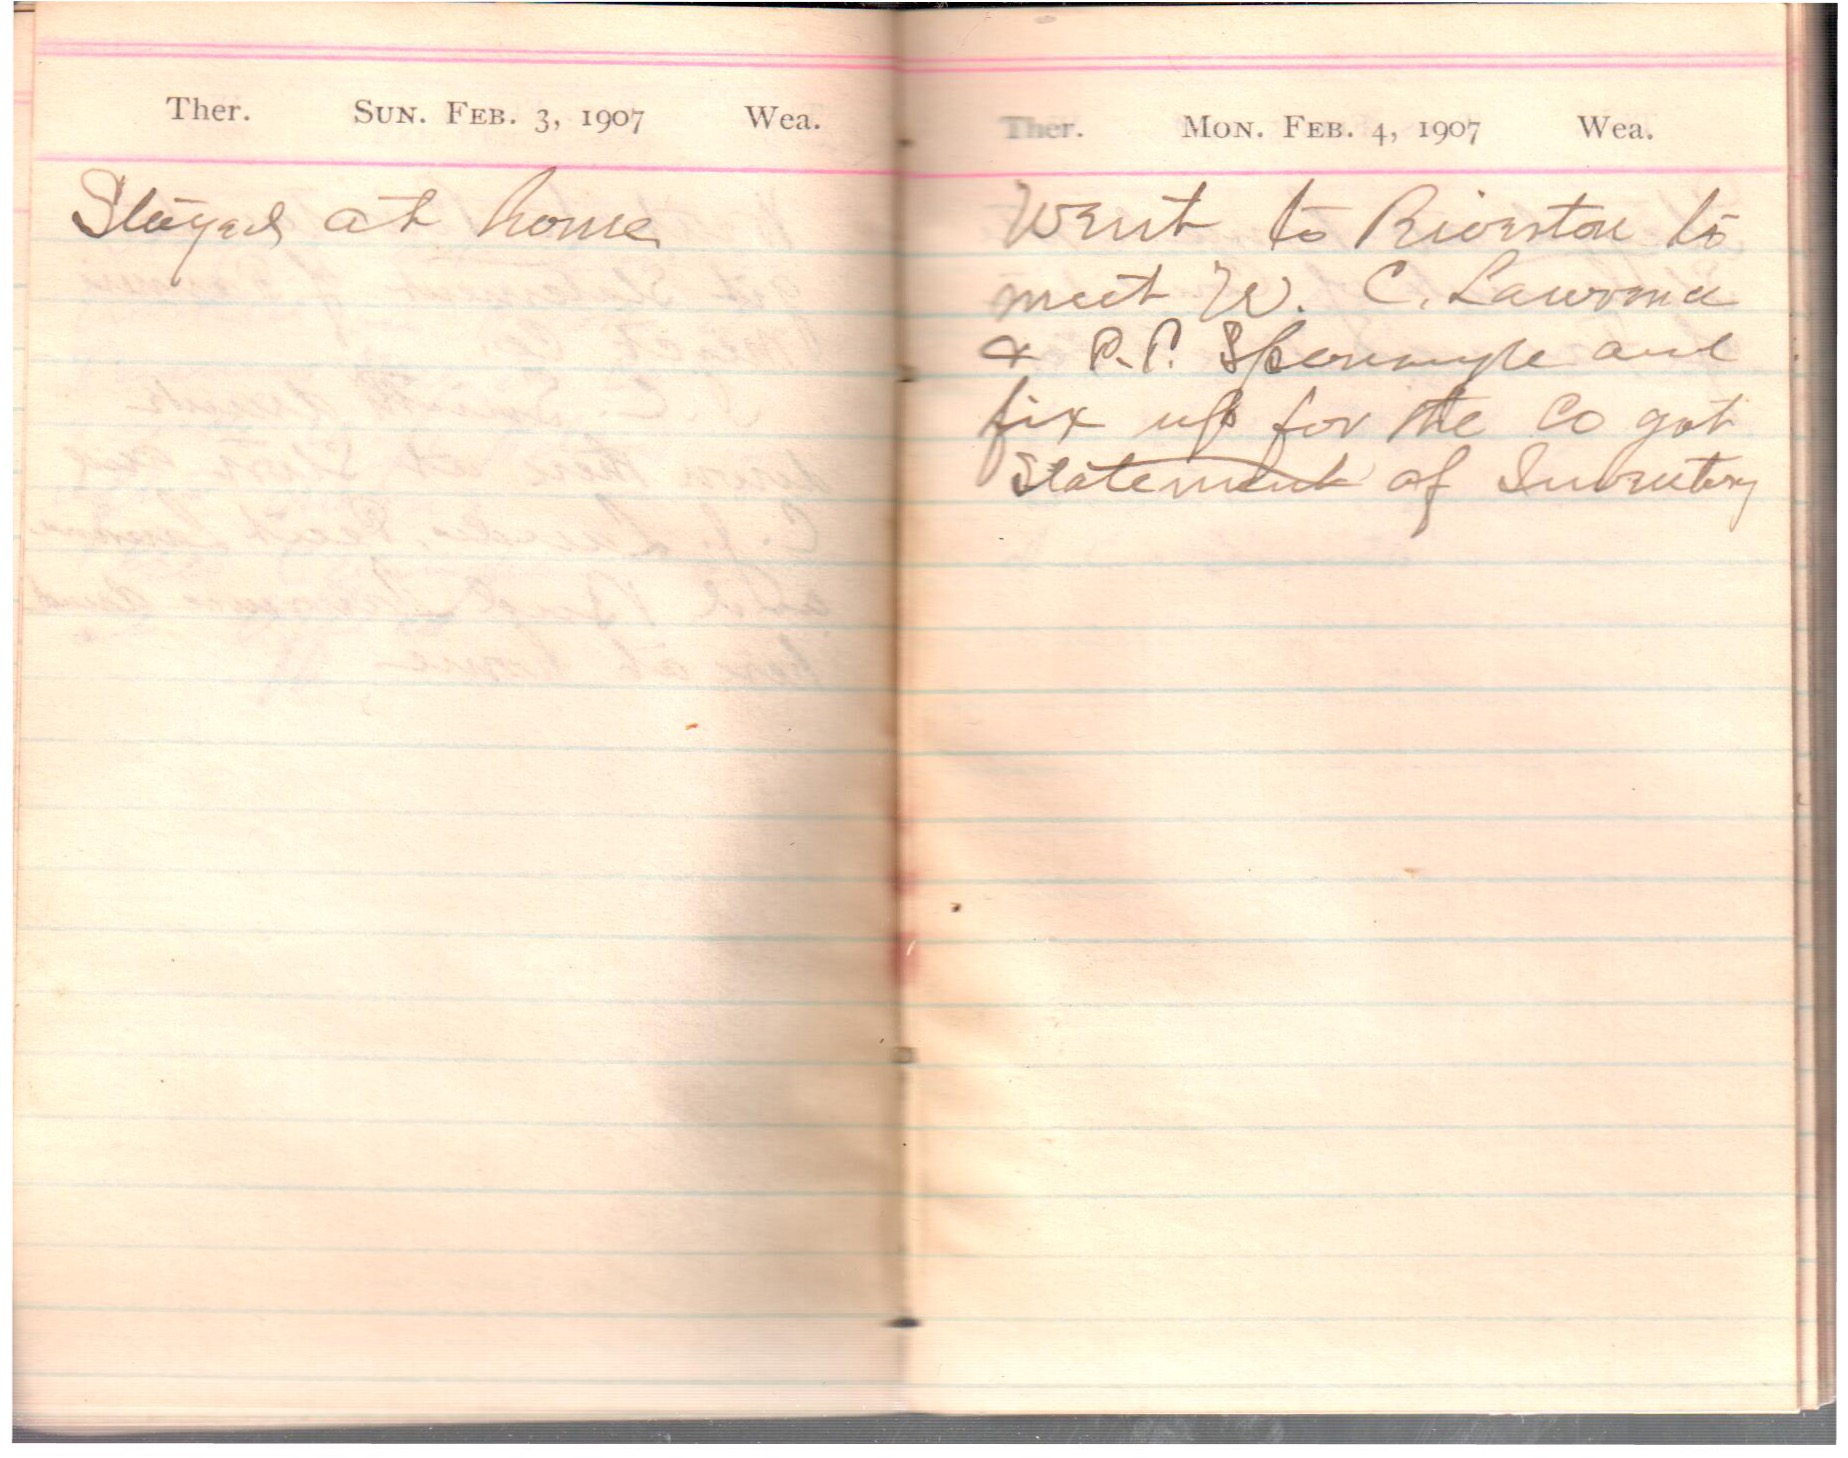 Ther. SUN. FEB. 3, 1907 Wea.
Stayed at home
Ther. MON. FEB. 4, 1907 Wea.
Went to Riverton to
meet W. C. Lawrence
& P. P. and
fix up for the Co got
Statement of Inventory